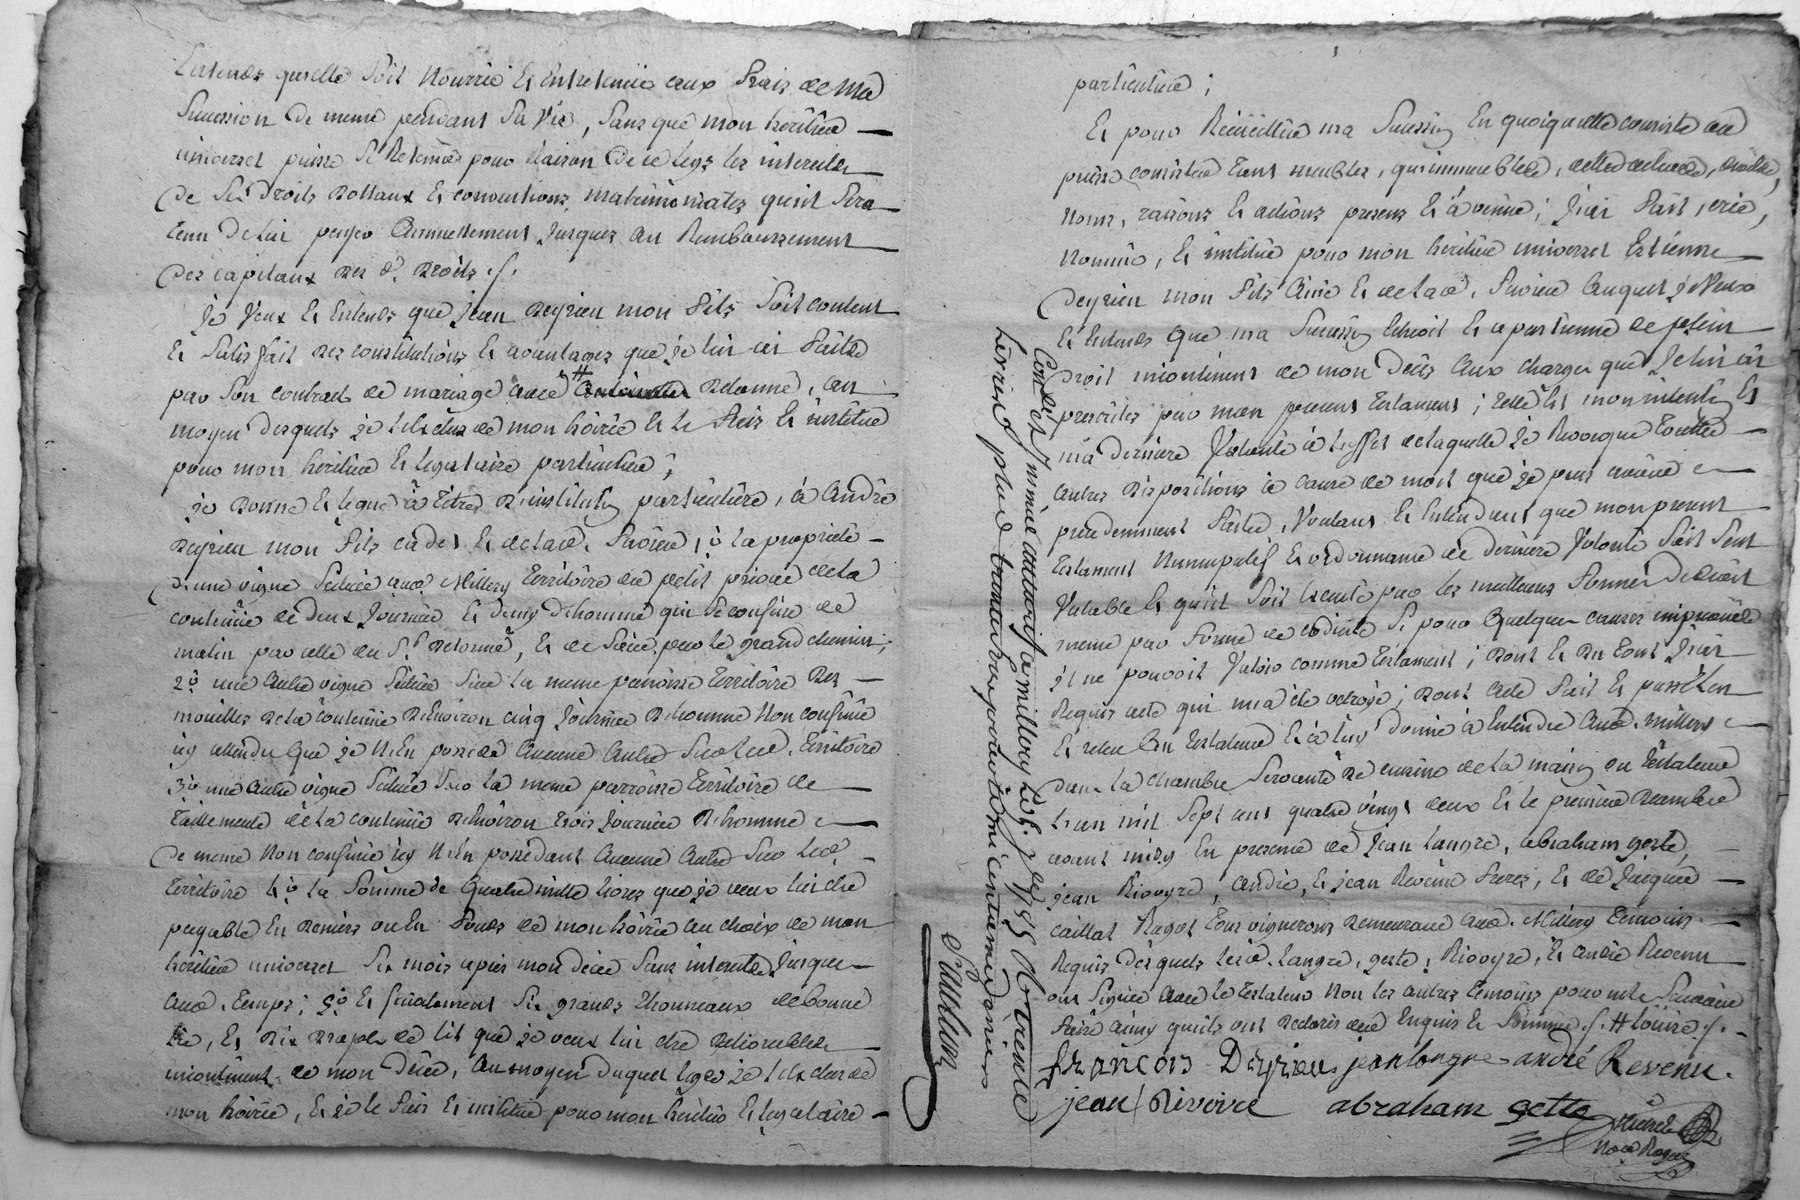 Entends qu'elle soit nourrie et entretenüe aux frais de ma
succession de meme pendant sa vie, sans que mon héritier
universel puisse se retenir pour raison de ce legs les interets
de ses droits dottaux et conventions matrimoniales qu'il sera
tenu de lui payer annuellement jusques au remboursement
des capitaux des d. droits ./.
Je veux et entends que jean deyrieu mon fils soit content
et satisfait des constitutions et avantages que je lui ai faitte
par son contract de mariage avec # delorme, au
moyen desquels je l'exclus de mon hoirie et le fais et institue
pour mon héritier et legataire particulier;
je donne et legue à titre d'institution particulière, à andré
deyrieu mon fils cadet et de lad. 1° la propriété
d'une vigne scituée aud. Millery territoire du petit de la
contenüe de deux journée et demy d'homme qui se confine de
matin par celle du Sr. delorme, et de par le grand chemin;
2° une autre vigne scituée sur la meme parroisse territoire des
mouilles de la contenüe d'environ cinq journée d'homme non confinée
icy attendu que je n'en possede aucune autre sur led. territoire
3° une autre vigne scituée sur la meme parroisse territoire de
de la contenüe d'environ trois journée d'homme
de meme non confinée icy n'en possédant aucune autre sur led.
territoire 4° la somme de quatre mille livres que je veux lui etre
payable en deniers ou en fonds de mon hoirie au choix de mon
héritier universel six mois après mon décés sans interets jusque
aud. temps; 5° et finalement six grands thonneaux de bonne
et dix draps de lit que je veux lui etre délivrables
incontinent de mon décés, au moyen duquel legs je l'exclus de
mon hoirie, et je le fais et institue pour mon héritier et legataire
particulier;
Et pour recüeillir ma succession en quoiqu'elle consiste ou
puisse consister tant meubles, qu'immeubles, dettes actives, droits,
noms, raisons et actions presens et à venir; j'ai fait, créé,
nommé, et institué pour mon héritier universel Estienne
deyrieu mon fils ainé et de lad. auquel je veux
et entends que ma succession echoit et apartienne de plein
droit incontinent de mon décés aux charges que je lui ai
prescrites par mon present testament; telle est mon intention et
ma derniere volonté à l'effet de laquelle je revoque touttes
autres dispositions à cause de mort que je peux avoir
precedemment faites, voulant et entendant que mon present
testament nuncupatif et ordonnance de derniere volonté soit seul
valable et qu'il soit executé par les meilleures formes de droit
meme par forme de codicile si pour quelques causes imprévües
il ne pouvoit valoir comme testament; dont et du tout j'ai
requis acte qui m'a été octroyé; dont acte fait et passé
et relu au testateur et à luy donné à entendre aud. millery
dans la chambre servante de cuisine de la maison du testateur
l'an mil sept cent quatre vingt deux et le premier décembre
avant midy en presence de jean langre, abraham gette,
jean Rivoyre, andré, et jean Revenu freres, et de jacques
caillat Ragot tous vignerons demeurant aud. Millery temoins
requis desquels led. langre, gette, Rivoyre, et andré Revenu
ont signés avec le testateur non les autres temoins pour ne le scavoir
faire ainsy qu'ils ont declarés de ce enquis et sommés ./. # loüise ./.
françois Deyrieu jean langre andré Revenu.
jean Rivoire abraham gette
Nore Royal
Con.lé et insinué a millery le 9. xbre 1782 Rx trente
livres plus trente trois pour le mi centieme deniers